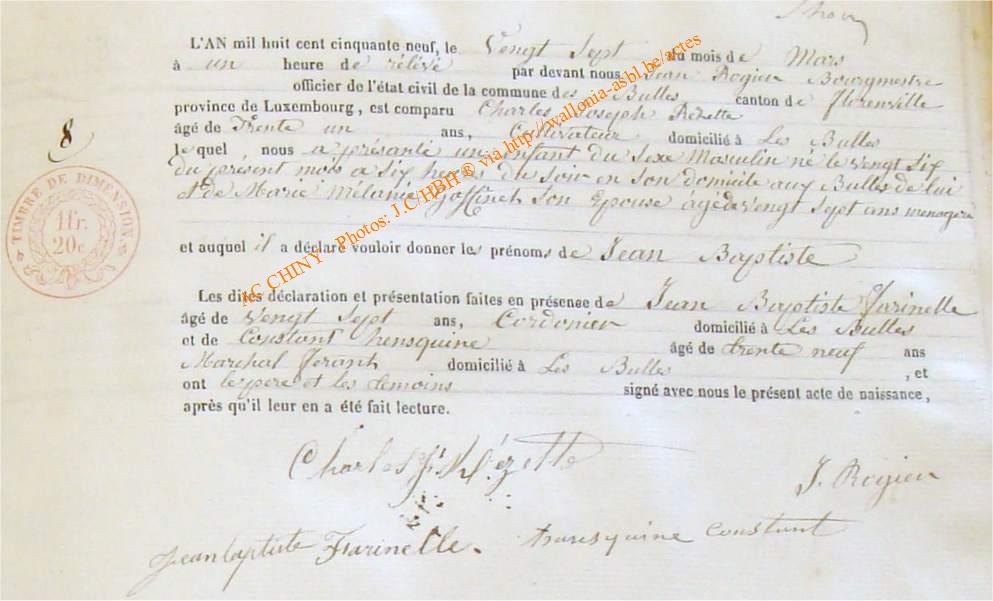 L'AN mil huit cent cinquante neuf, le Vengt Sept du mois de Mars
à un heure de rélévé par devant nous Jean Rogier Bourgmestre
officier de l'état civil de la commune des Bulles canton de Florenville
province de Luxembourg, est comparu Charles Joseph Rézette
âgé de Trente un ans, Cultivateur domicilié à Les Bulles
le quel, nous a présanté un enfant du Sexe Masculin né le vengt Six
du présent mois a Six heures du Soir en Son domicile aux Bulles de lui
et de Marie Mélanie Goffinet Son Epouse agé de vengt Sept ans menagere
et auquel il a déclaré vouloir donner les prénoms de Jean Baptiste
Les dites déclaration et présentation faites en présence de Jean Baptiste Farinelle
âgé de Vengt Sept ans, Cordonier domicilié à Les Bulles
et de Constant âgé de trente neuf ans
Marechal ferant domicilié à Les Bulles, et
ont le pere et les temoins signé avec nous le présent acte de naissance,
après qu'il leur en a été fait lecture.
8
TIMBRE DE DIMENSION
1 fr.
20c.
Charles J. Rézette
J. Rogier
Jean baptiste Farinelle. Constant
AC CHINY - Photos: J.C HBH ® via http://wallonia-asbl.be/actes